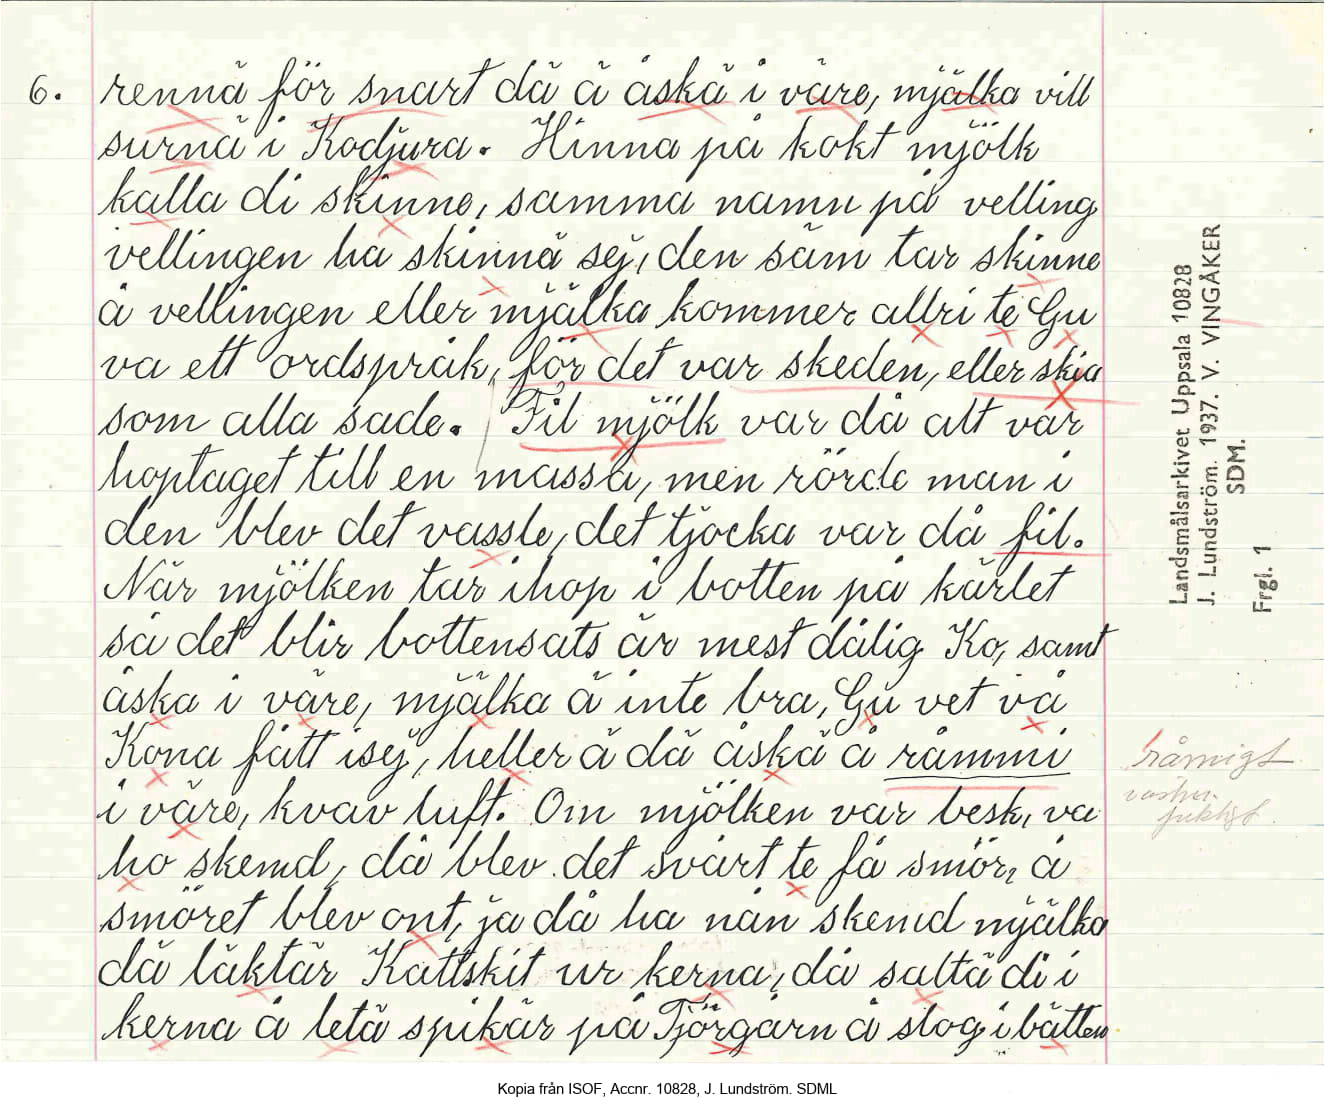 6. rennä för snart dä ä åskä i väre, mjälka vill
surnä i Kodjura. Hinna på kokt mjölk
kalla di skinne, samma namn på velling
vellingen ha skinnä sej, den säm tar skinne
å vellingen eller mjälka kommer allri te Gu
va ett ordspråk, för det var skeden, eller skia
som alla sade. Fil mjölk var då alt var
hoptaget till en massa, men rörde man i
den blev det vassle, det tjocka var då fil.
När mjölken tar ihop i botten på kärlet
så det blir bottensats är mest dålig Ko, samt
åska i väre, mjälka ä inte bra, Gu vet vå
Kona fått isej, heller ä dä åskä å råmmi
i väre, kvav luft. Om mjölken var besk, va
ho skemd, då blev det svårt te få smör, å
smöret blev ont, ja då ha nån skemd mjälka
dä läktär Kattskit ur kerna, då saltä di i
kerna å letä spikär på Tjörgårn å slog i bätten
råmigt
fuktigt
Landsmålsarkivet Uppsala 10828
J. Lundström. 1937. V. VINGÅKER
SDM.
Frgl. 1
Kopia från ISOF, Accnr. 10828, J. Lundström. SDML